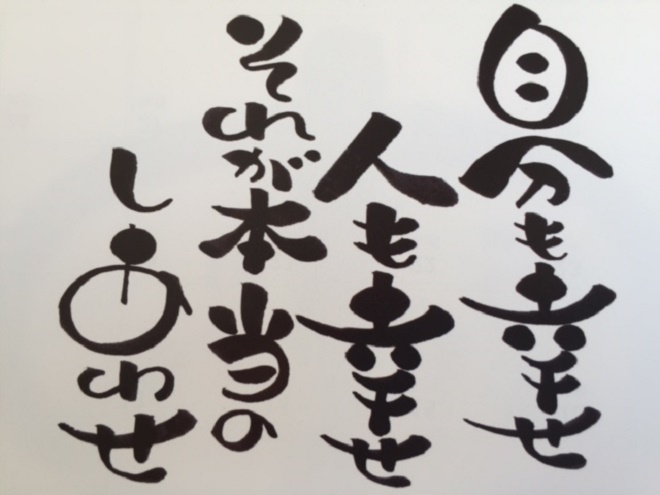 自分も幸せ
人も幸せ
それが本当の
しあわせ